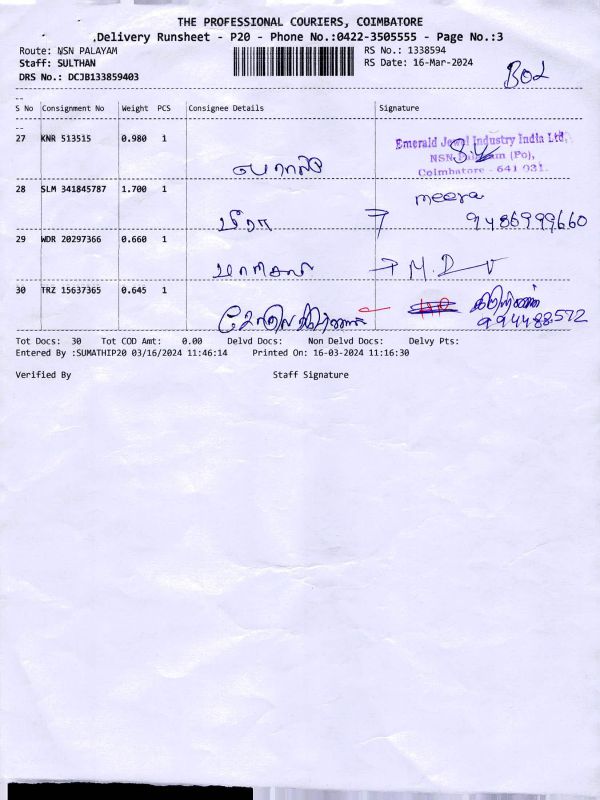 THE PROFESSIONAL COURIERS, COIMBATORE
.Delivery Runsheet - P20 - Phone No.:0422-3505555 - Page No.:3
Route: NSN PALAYAM RS No.: 1338594
Staff: SULTHAN RS Date: 16-Mar-2024
DRS No.: DCJB133859403
--
S No Consignment No Weight PCS Consignee Details Signature
--
27 KNR 513515 0.980 1
Emerald Jewel Industry India Ltd,
NSN (Po),
Coimbatore - 641 031.
28 SLM 341845787 1.700 1 meera
மீரா 9486999660
29 WDR 20297366 0.660 1
30 TRZ 15637365 0.645 1
994488572
Tot Docs: 30 Tot COD Amt: 0.00 Delvd Docs: Non Delvd Docs: Delvy Pts:
Entered By :SUMATHIP20 03/16/2024 11:46:14 Printed On: 16-03-2024 11:16:30
Verified By Staff Signature